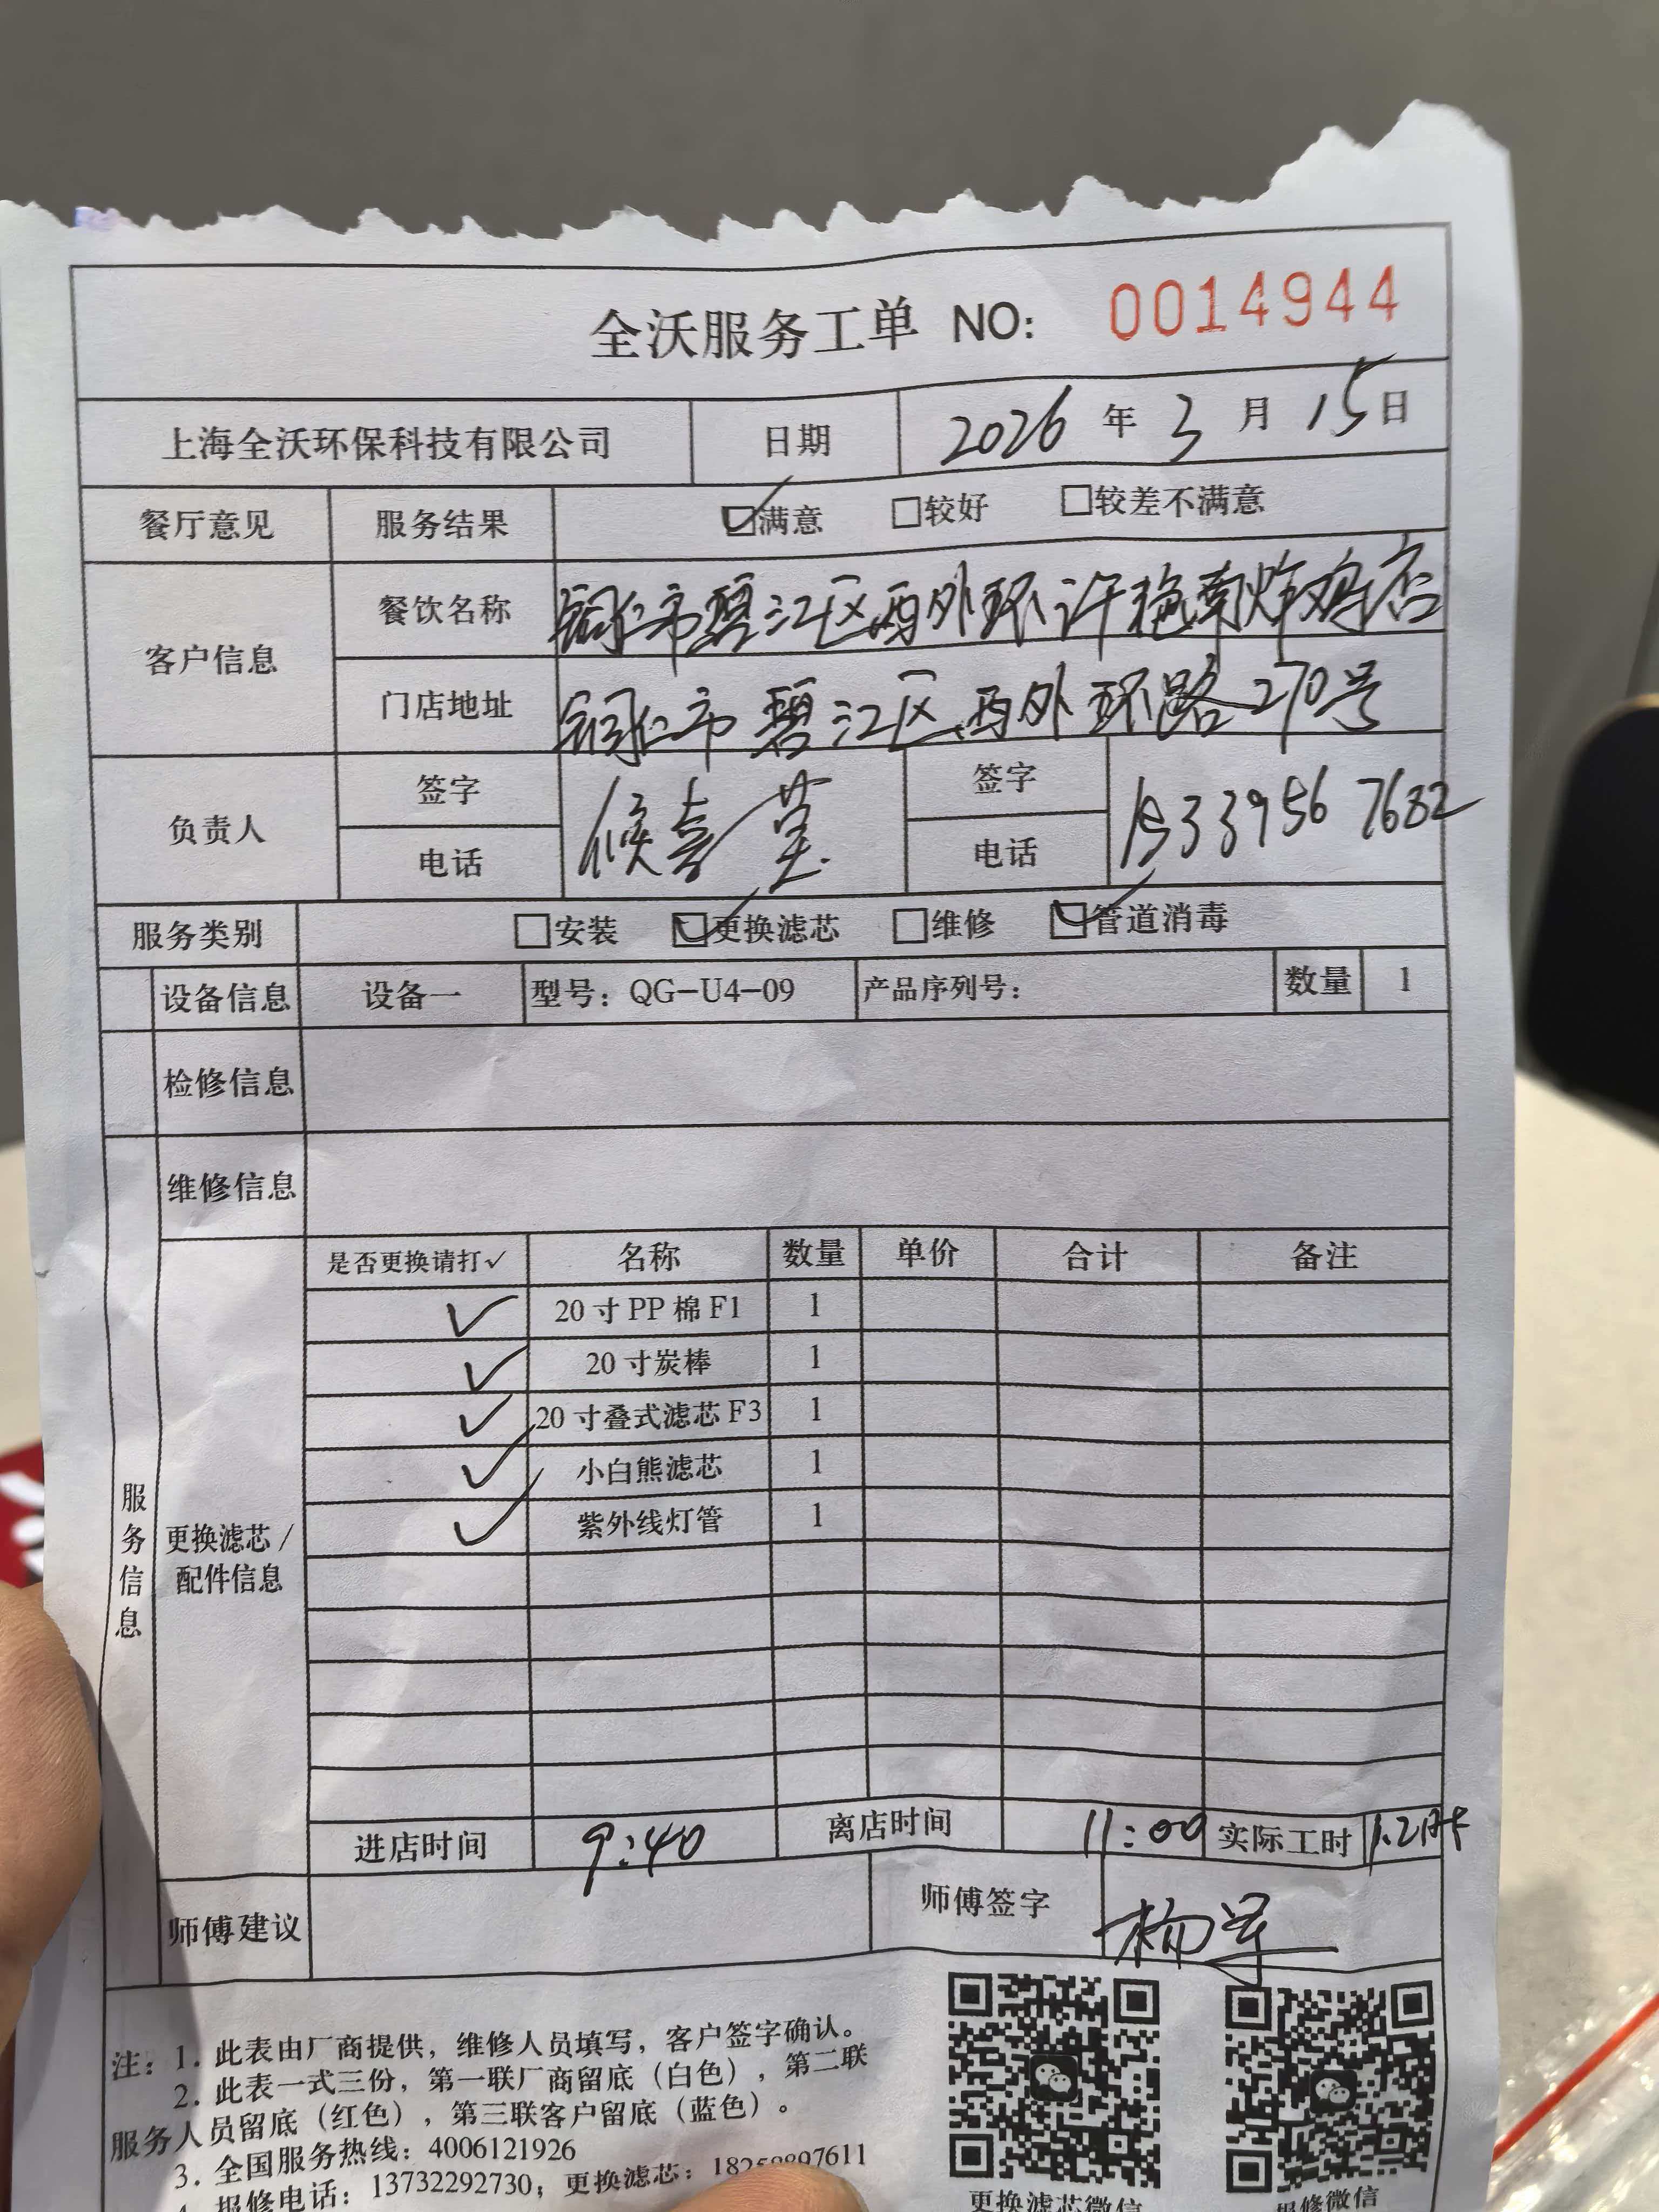 全沃服务工单 NO: 0014944
上海全沃环保科技有限公司 日期 2026 年 3 月 15 日
餐厅意见 服务结果 ☑满意 □较好 □较差不满意
客户信息 餐饮名称 铜仁市碧江区西外环许艳南炸鸡店
门店地址 铜仁市碧江区西外环路270号
负责人 签字 电话 候喜 签字 电话
服务类别 □安装 ☑更换滤芯 □维修 ☑管道消毒
设备信息 设备一 型号：QG-U4-09 产品序列号： 数量 1
检修信息
维修信息
服务信息
更换滤芯/配件信息
是否更换请打✓ 名称 数量 单价 合计 备注
✓ 20寸PP棉F1 1
✓ 20寸炭棒 1
✓ 20寸叠式滤芯F3 1
✓ 小白熊滤芯 1
✓ 紫外线灯管 1
进店时间 9:40 离店时间 11:00 实际工时 1.2时
师傅建议 师傅签字 杨军
注：1. 此表由厂商提供，维修人员填写，客户签字确认。
2. 此表一式三份，第一联厂商留底（白色），第二联
服务人员留底（红色），第三联客户留底（蓝色）。
3. 全国服务热线：4006121926
4. 报修电话：13732292730；更换滤芯：
更换滤芯微信 报修微信